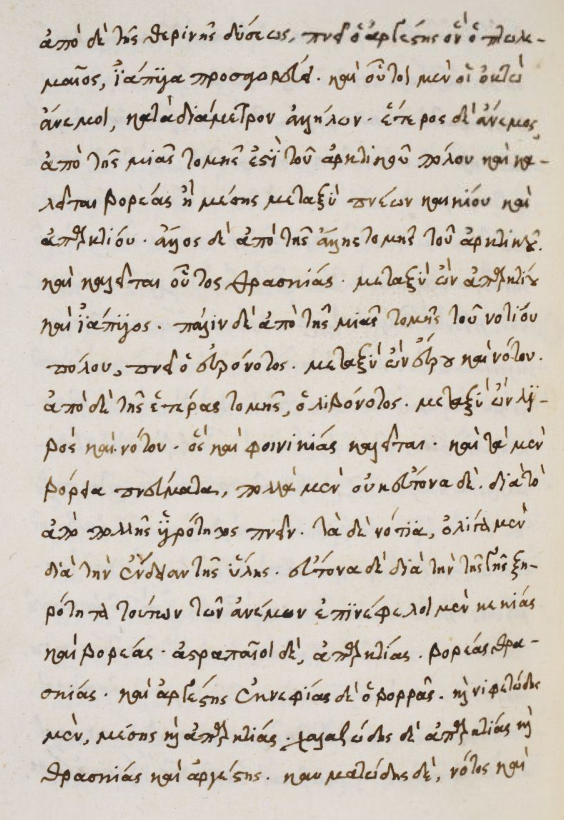 ἀπὸ δὲ τῆς θερινῆς δύσεως, πνεῖ ὁ ἀργέστης ὃν ὁ πτωλε-
μαῖος, ἰάπυγα προσηγορευσε. καὶ οὗτοι μὲν οἱ ὀκτὼ
ἄνεμοι, κατὰ διάμετρον ἀλλήλων. ἕτερος δὲ ἄνεμος
ἀπὸ τῆς μιᾶς τομῆς ἐστὶ τοῦ ἀρκτικοῦ πόλου καὶ κα-
λεῖται βορέας ἢ μέσης μεταξὺ πνέων καικίου καὶ
ἀπαρκτίου. ἄλλος δὲ ἀπὸ τῆς ἄλλης τομῆς τοῦ ἀρκτικοῦ.
καὶ καλεῖται οὗτος θρασκιάς. μεταξὺ ὢν ἀπαρκτίου
καὶ ἰάπυγος. πάλιν δὲ ἀπὸ τῆς μιᾶς τομῆς τοῦ νοτίου
πόλου, πνεῖ ὁ εὐρόνοτος. μεταξὺ ὢν εὔρου καὶ νότου.
ἀπὸ δὲ τῆς ἑτέρας τομῆς, ὁ λιβόνοτος. μεταξὺ ὢν λι-
βὸς καὶ νότου. ὃς καὶ φοινικίας καλεῖται. καὶ τὰ μὲν
βόρεα πνεύματα, πολλὰ μὲν οὐκ εὔτονα δέ. διὰ τὸ
ἀπὸ πολλῆς ὑγρότητος πνεῖν. τὰ δὲ νότια, ὀλίγα μὲν
διὰ τὴν ἔνδειαν τῆς ὕλης. εὔτονα δὲ διὰ τὴν τῆς γῆς ξη-
ρότητα τούτων τῶν ἀνέμων ἐπινέφελοι μὲν κεκίας
καὶ βορέας. ἀστραπαῖοι δὲ, ἀπαρκτίας. βορέας θρα-
σκιάς. καὶ ἀργέστης συνεφίας δὲ ὁ βορρᾶς. καὶ νιφετώδης
μὲν, μέσης καὶ ἀπαρκτίας. χαλαζώδης δὲ ἀπαρκτίας καὶ
θρασκιάς καὶ ἀργέστης. καυματώδης δὲ, νότος καὶ